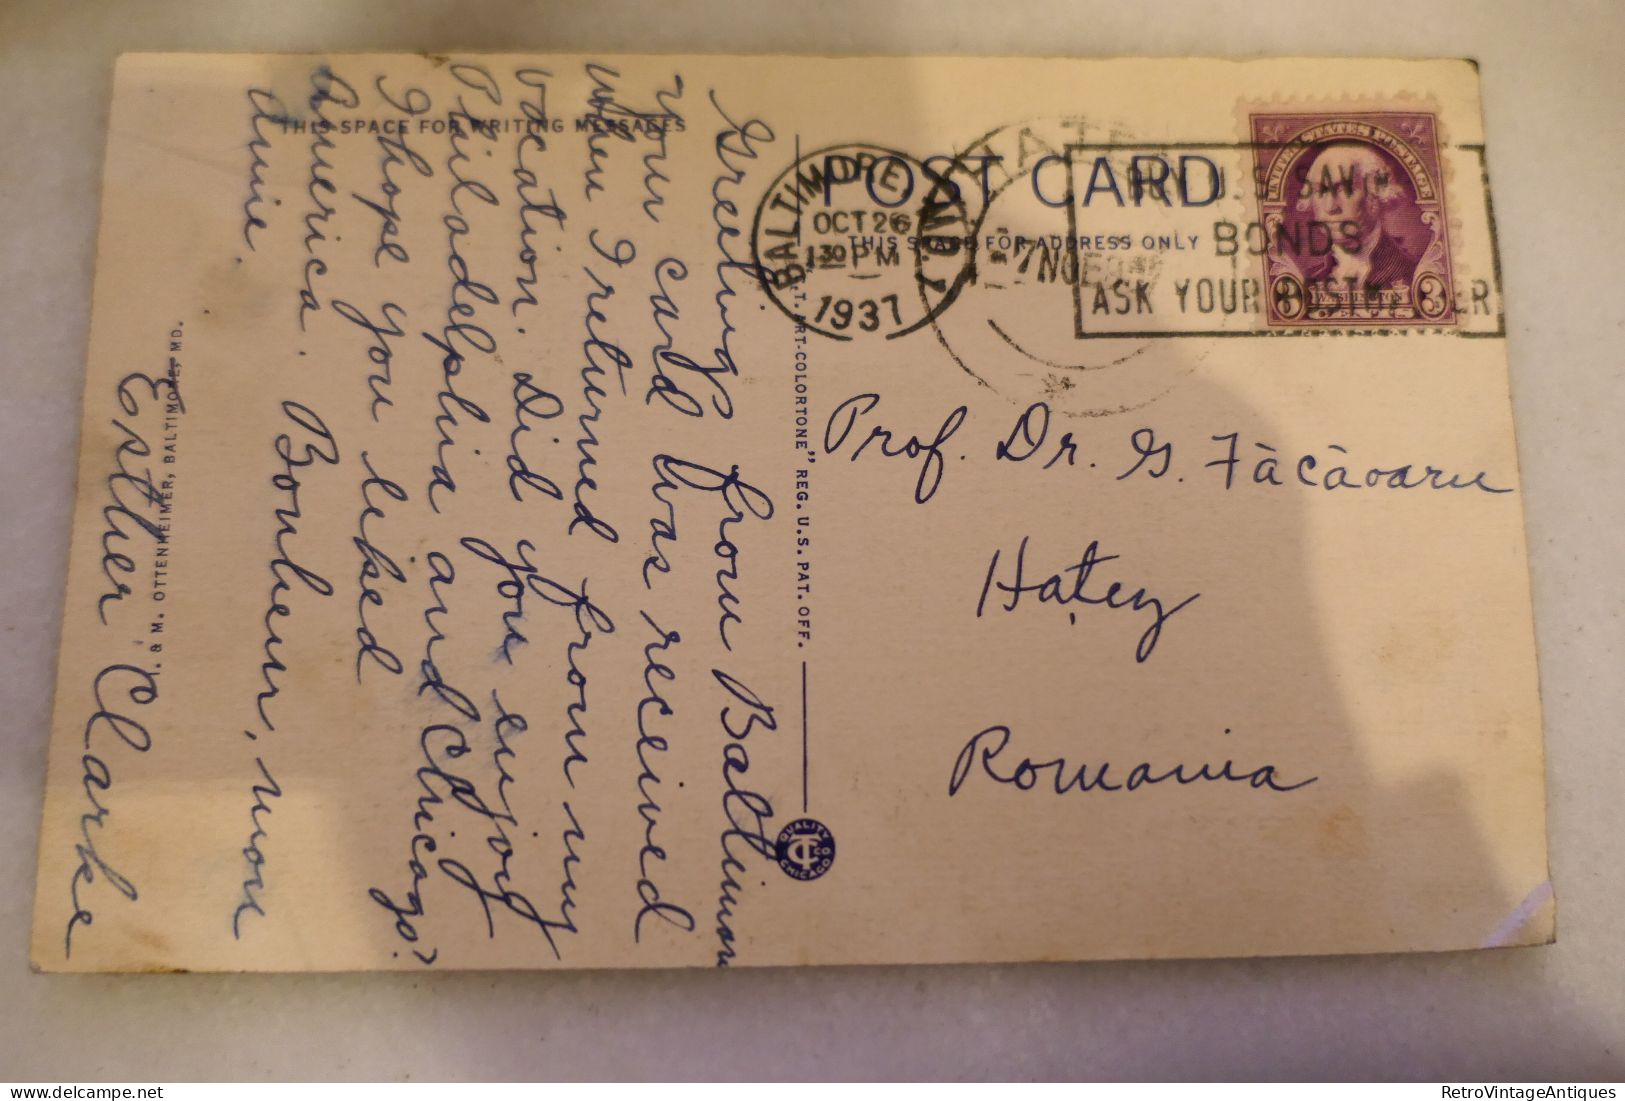 THIS SPACE FOR WRITING MESSAGES
Greetings from Baltimore
Your card was received
when I returned from my
vacation. Did you enjoy
Philadelphia and Chicago?
I hope you liked
America. Bonheur, mon
Amie.
Esther Clarke
I. & M. OTTENHEIMER, BALTIMORE, MD.
"C.T. ART-COLORTONE" REG. U.S. PAT. OFF.
QUALITY
CHICAGO
POST CARD
THIS SPACE FOR ADDRESS ONLY
BALTIMORE, MD.
OCT 26
130 PM
1937
HATEG
-7 NOE
BUY U.S. SAV
BONDS
ASK YOUR POSTM ER
UNITED STATES POSTAGE
3 WASHINGTON 3
Prof. Dr. G. Făcăoaru
Hațeg
Romania
RetroVintageAntiques